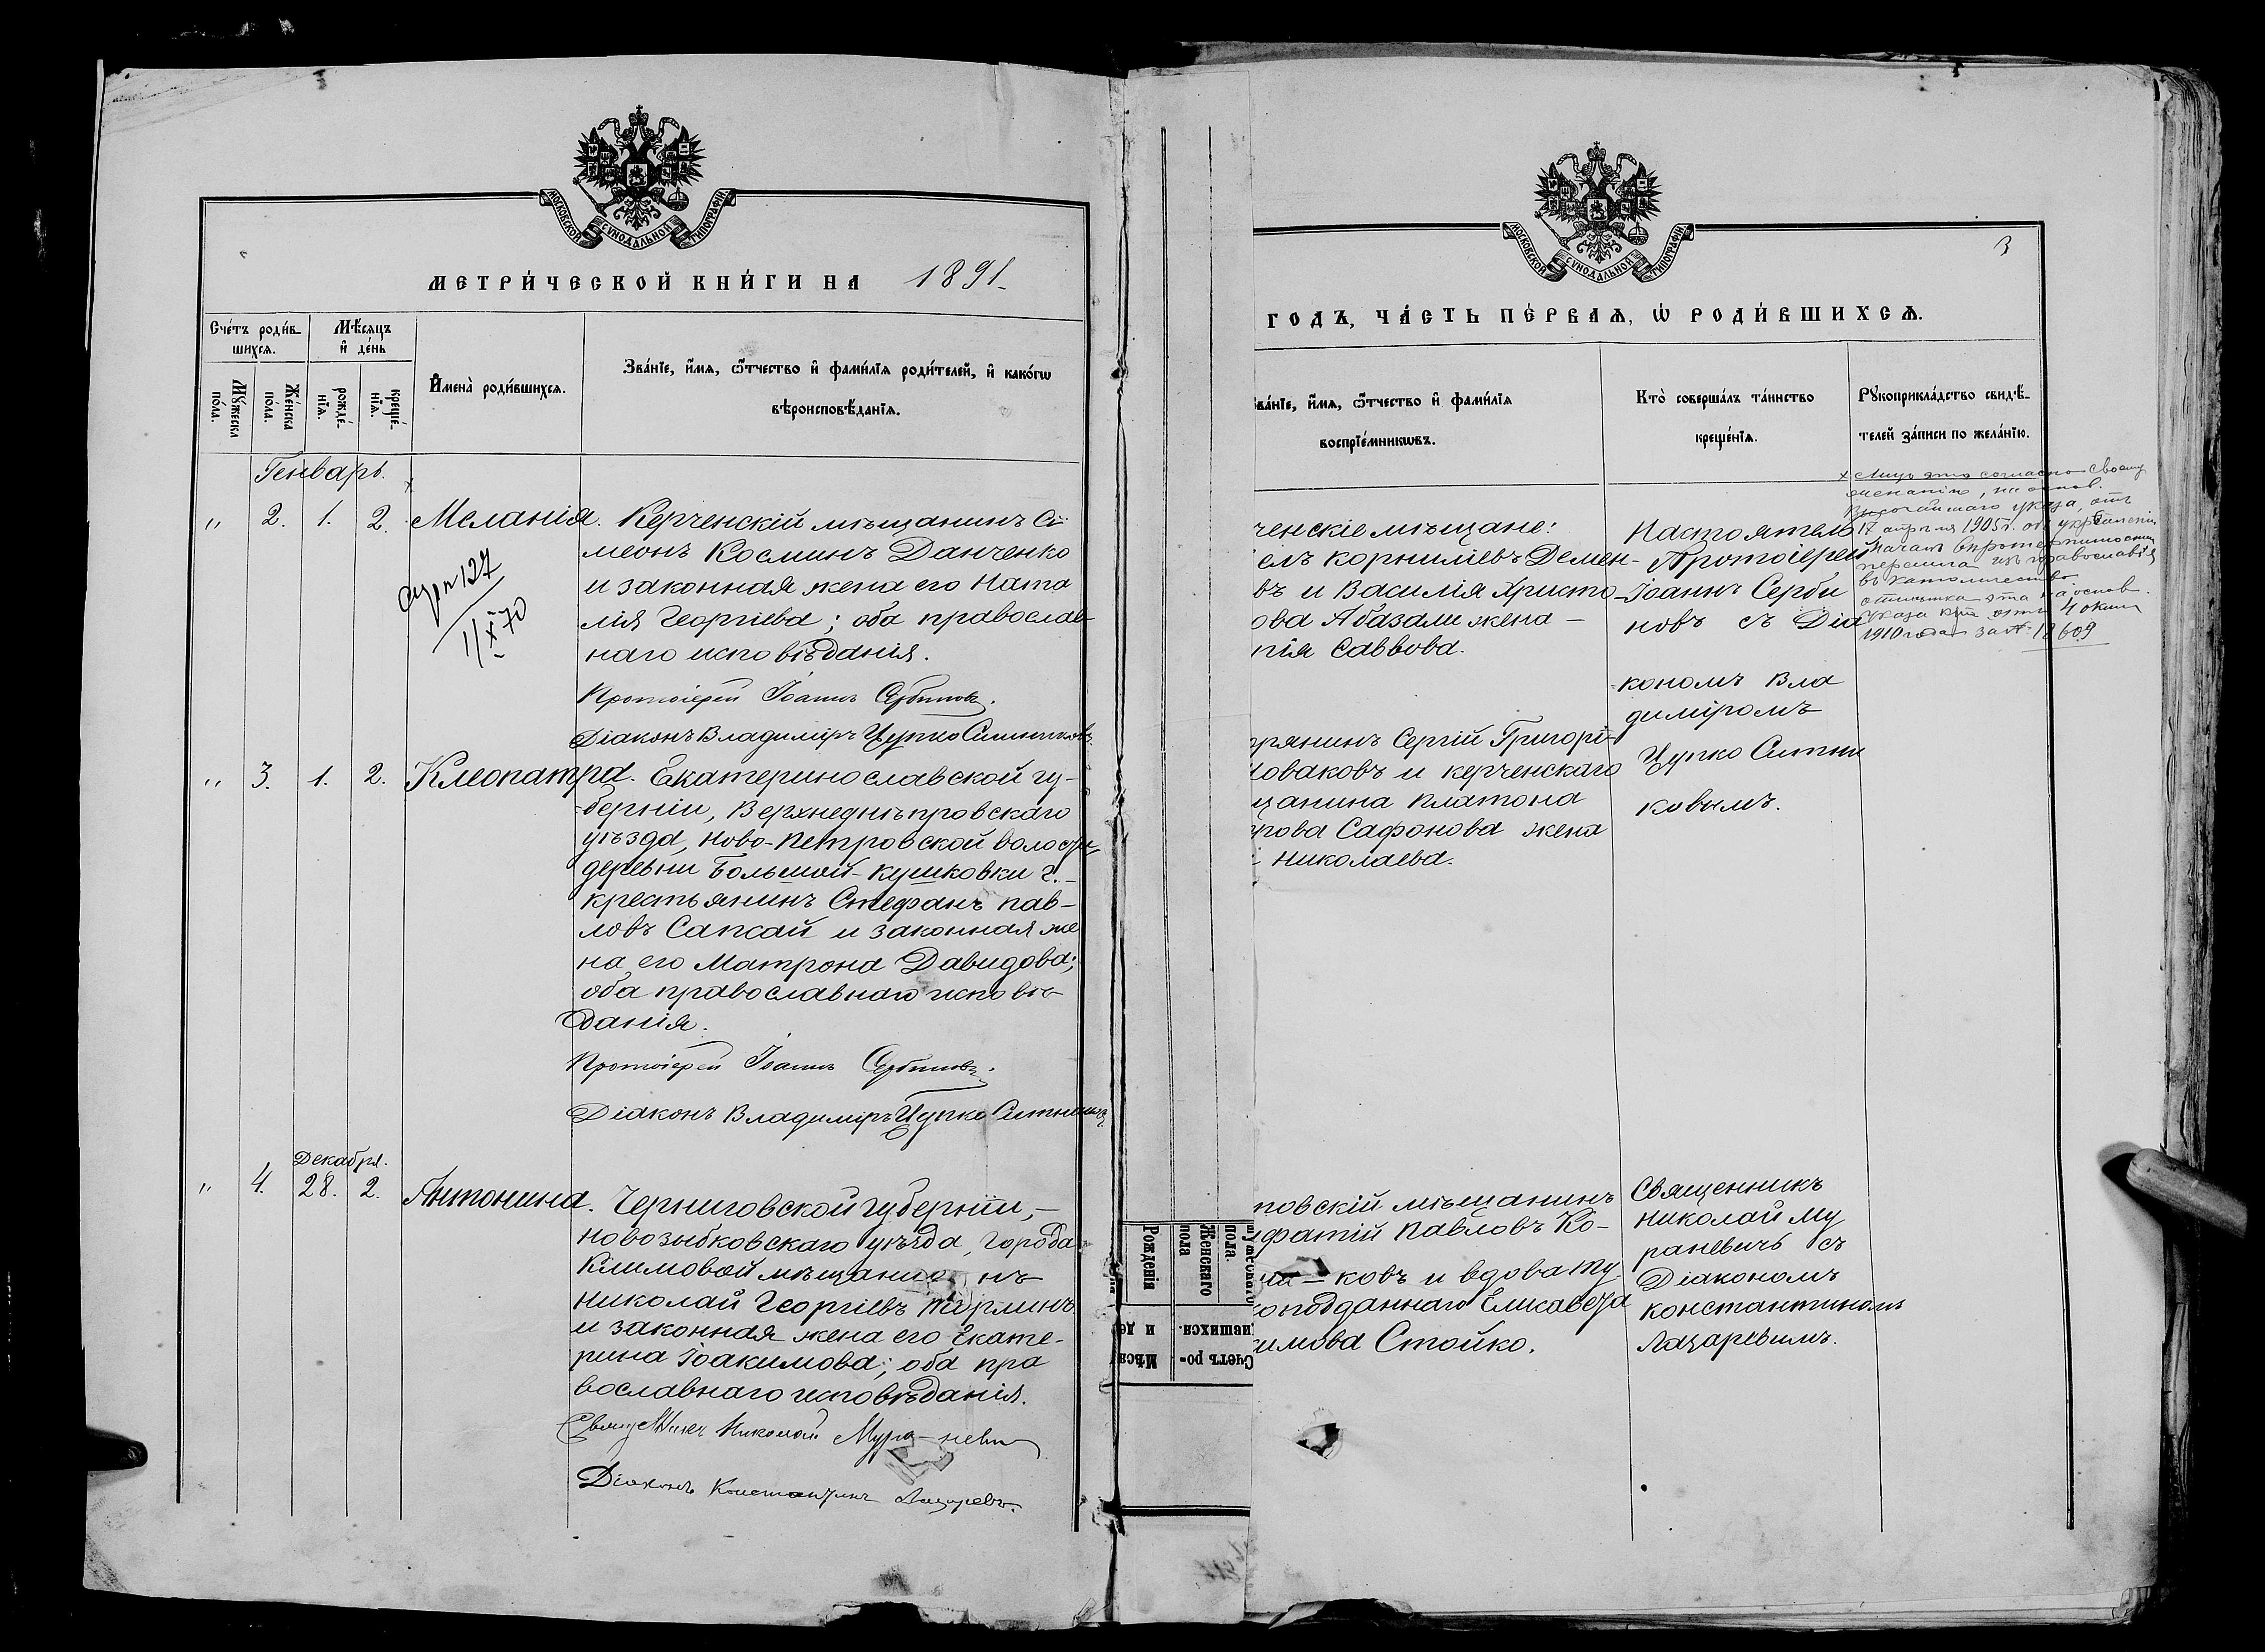 МОСКОВСКОЙ СУНОДАЛЬНОЙ ТИПОГРАФІИ
МЕТРИ́ЧЕСКОЙ КНИ́ГИ НА 1891
Сче́тъ роди́в-
шихся.
Мѣ́сяцъ
и҆ де́нь
Мꙋ́жеска
по́ла.
Же́нска
по́ла.
рожде́-
нїя.
креще́-
нїя.
И҆мена̀ роди́вшихся.
Зва́нїе, и҆́мя, ѻ҆́тчество и҆ фами́лїя роди́телей, и҆ како́гѡ
вѣроисповѣ́данїя.
Генварь.
" 2. 1. 2. Меланія. Керченскій мѣщанинъ Си
меонъ Косминъ Данченко
и законная жена его Ната
лія Георгіева; оба православ
наго исповѣданія.
127
1/X 70
Протоіерей Іоаннъ Сербиновъ.
Діаконъ Владиміръ Цупко Ситниковъ
" 3. 1. 2. Клеопатра. Екатеринославской гу-
берніи, Верхнеднѣпровскаго
уѣзда, Ново-Петровской волости
деревни Большой-Кушковки г.-
крестьянинъ Стефанъ Пав-
ловъ Сапсай и законная же
на его Матрона Давидова;
оба православнаго исповѣ-
данія.
Протоіерей Іоаннъ Сербиновъ.
Діаконъ Владиміръ Цупко Ситниковъ
Декабря.
" 4. 28. 2. Антонина. Черниговской губерніи,-
Новозыбковскаго уѣзда, города
Климовой мѣщанинъ
Николай Георгіевъ Тюрлинъ
и законная жена его Екате-
рина Іоакимова; оба пра
вославнаго исповѣданія.
Священникъ Николай Мура-невичъ
Діаконъ Константинъ Лазаревъ.
Рожденія
Женскаго
пола
пола.
и де
ившихся.
Мѣся
Счетъ ро-
МОСКОВСКОЙ СУНОДАЛЬНОЙ ТИПОГРАФІИ
3
ГОДЪ, ЧА́СТЬ ПЕ́РВАЯ, Ѡ РОДИ́ВШИХСЯ.
ва́нїе, и҆́мя, ѻ҆́тчество и҆ фами́лїя
воспрїе́мникѡвъ.
Кто̀ соверша́лъ та́инство
креще́нїя.
Рꙋкоприкла́дство свидѣ́-
телей за́писи по жела́нїю.
ченскіе мѣщане:
елъ Корниліевъ Демен-
въ и Василія Христо
ова Абазали жена -
нія Саввова.
Настоятель
Протоіерей
Іоаннъ Серби
новъ съ Діа
кономъ Вла
диміромъ
Цупко Ситни
ковымъ.
х Лицо это согласно своему
желанію, на основ.
Высочайшаго указа, отъ
17 апрѣля 1905 г. объ укрѣпленіи
началъ вѣротерпимости
перешла изъ православія
въ католичество
отмѣтка эта на основ.
указа отъ 4 окт
1910 года за № 18609
рянинъ Сергій Григорі-
Новаковъ и керченскаго
щанина Платона
рова Сафонова жена
Николаева.
повскій мѣщанинъ
ифатій Павловъ Ко-
ковъ и вдова ту
коподданнаго Елисавета
имова Стойко.
Священникъ
Николай Му
раневичъ съ
Діакономъ
Константиномъ
Лазаревымъ.